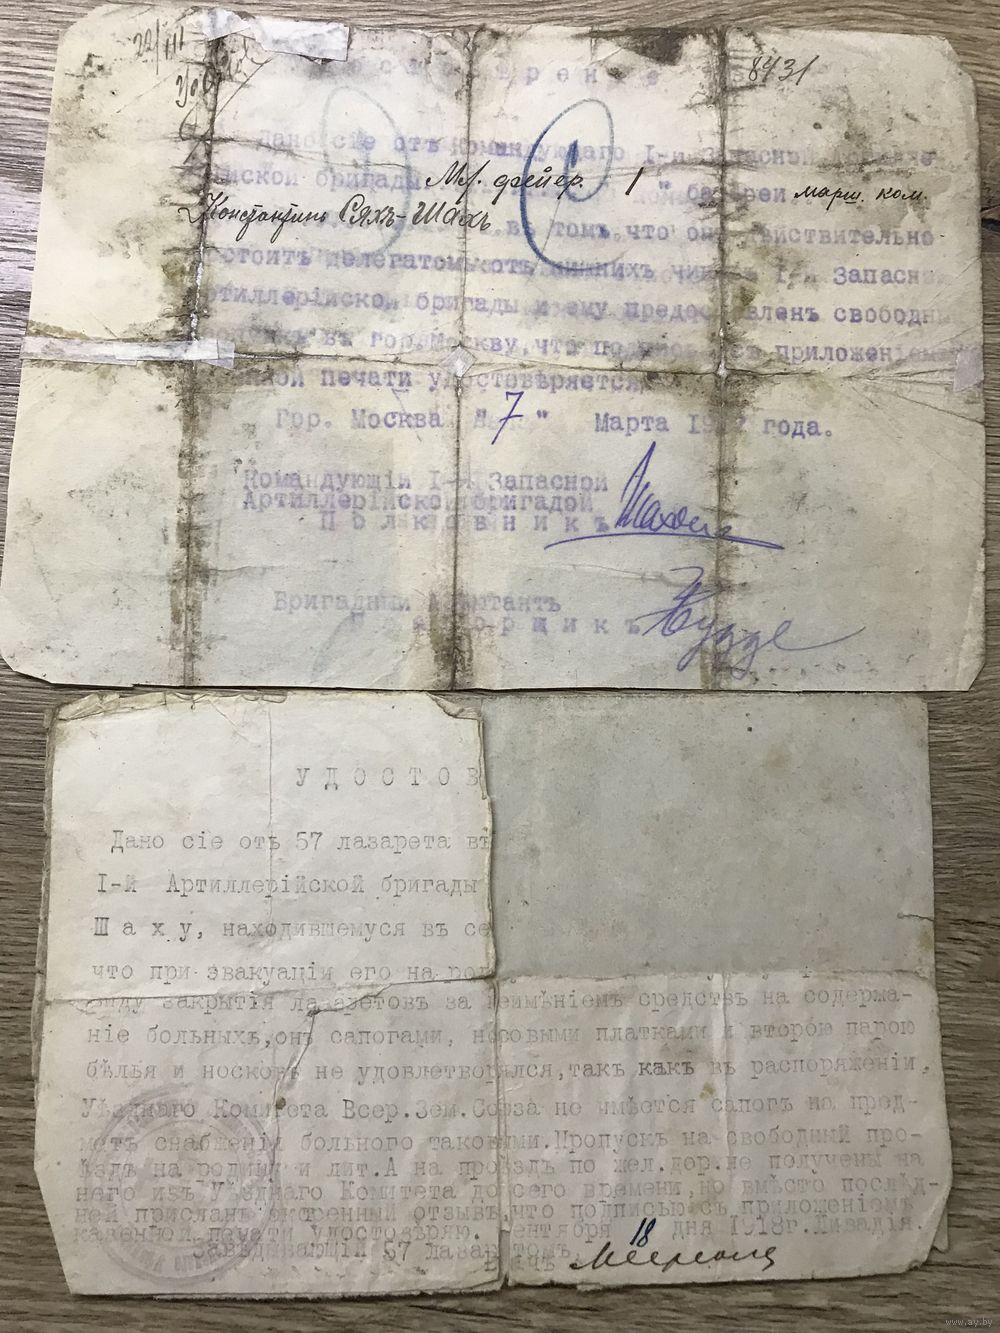 22/III
8431
Дано сіе отъ командующаго I-й Запасной
бригады Мл. фейер. 1" батареи марш. ком.
Константинъ Сяхъ-Шахъ
въ томъ, что онъ дѣйствительно
состоитъ делегатомъ отъ нижнихъ чиновъ I-й Запасной
артиллерійской бригады и ему предоставленъ свободный
въ гор. Москву, что подписью съ приложеніемъ
печати удостовѣряется.
Гор. Москва "7" Марта года.
Командующій I-й Запасной
Артиллерійской бригадой
Полковникъ
Бригадный Адъютантъ
Прапорщикъ
УДОСТОВ
Дано сіе отъ 57 лазарета въ
I-й Артиллерійской бригады
Шаху, находившемуся въ се
что при эвакуаціи его на род
виду закрытія лазаретовъ за неимѣніемъ средствъ на содержа-
ніе больныхъ, онъ сапогами, носовыми платками и второю парою
бѣлья и носковъ не удовлетворялся, такъ какъ въ распоряженіи
Уѣзднаго Комитета Всер.Зем.Союза не имѣется сапогъ на пред-
метъ снабженія больного таковыми. Пропускъ на свободный про-
ѣздъ на родину и лит.А на проѣздъ по жел.дор. не получены на
него изъ Уѣзднаго Комитета до сего времени, но вмѣсто послѣд-
ней присланъ экстренный отзывъ, что подписью съ приложеніемъ
казенной печати удостовѣряю. Сентября 18 дня 1918г. Ливадія.
Завѣдывающій 57 лазаретомъ,
Врачъ
www.ay.by